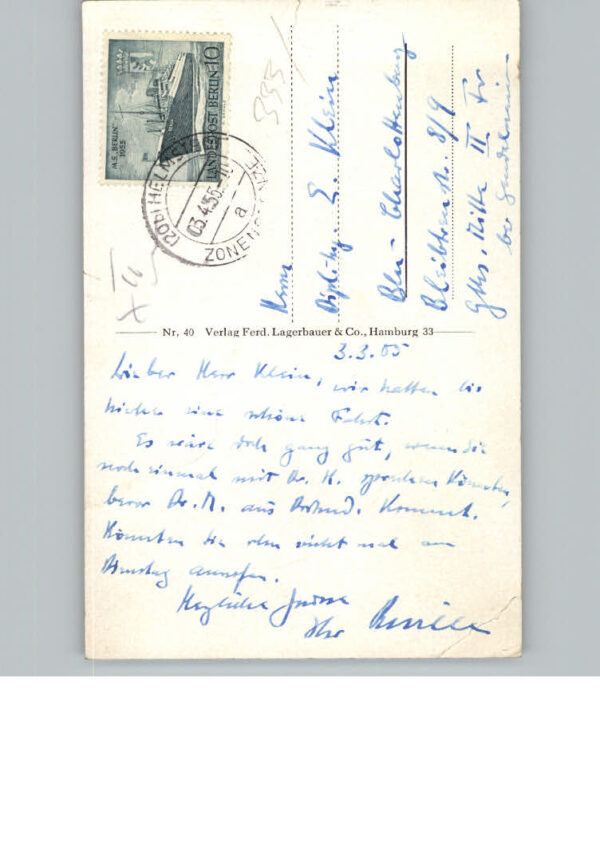 M.S. „BERLIN”
1955
LANDESPOST BERLIN
10
(20b) HELMSTEDT
03.4.55
a
ZONENGRENZE
335
Herrn
Dipl. Ing. E. Klein
Bln - Charlottenburg
Bleibtreustr. 8/9
Gths. Mitte II Tr
bei
Nr. 40 Verlag Ferd. Lagerbauer & Co., Hamburg 33
3.3.55
Lieber Herr Klein, wir hatten bis
hierher eine schöne Fahrt.
Es wäre doch ganz gut, wenn Sie
noch einmal mit Dr. H. sprechen könnten,
bevor Dr. M. aus kommt.
Könnten Sie ihn nicht mal am
Dienstag anrufen.
Herzliche Grüsse
Ihr